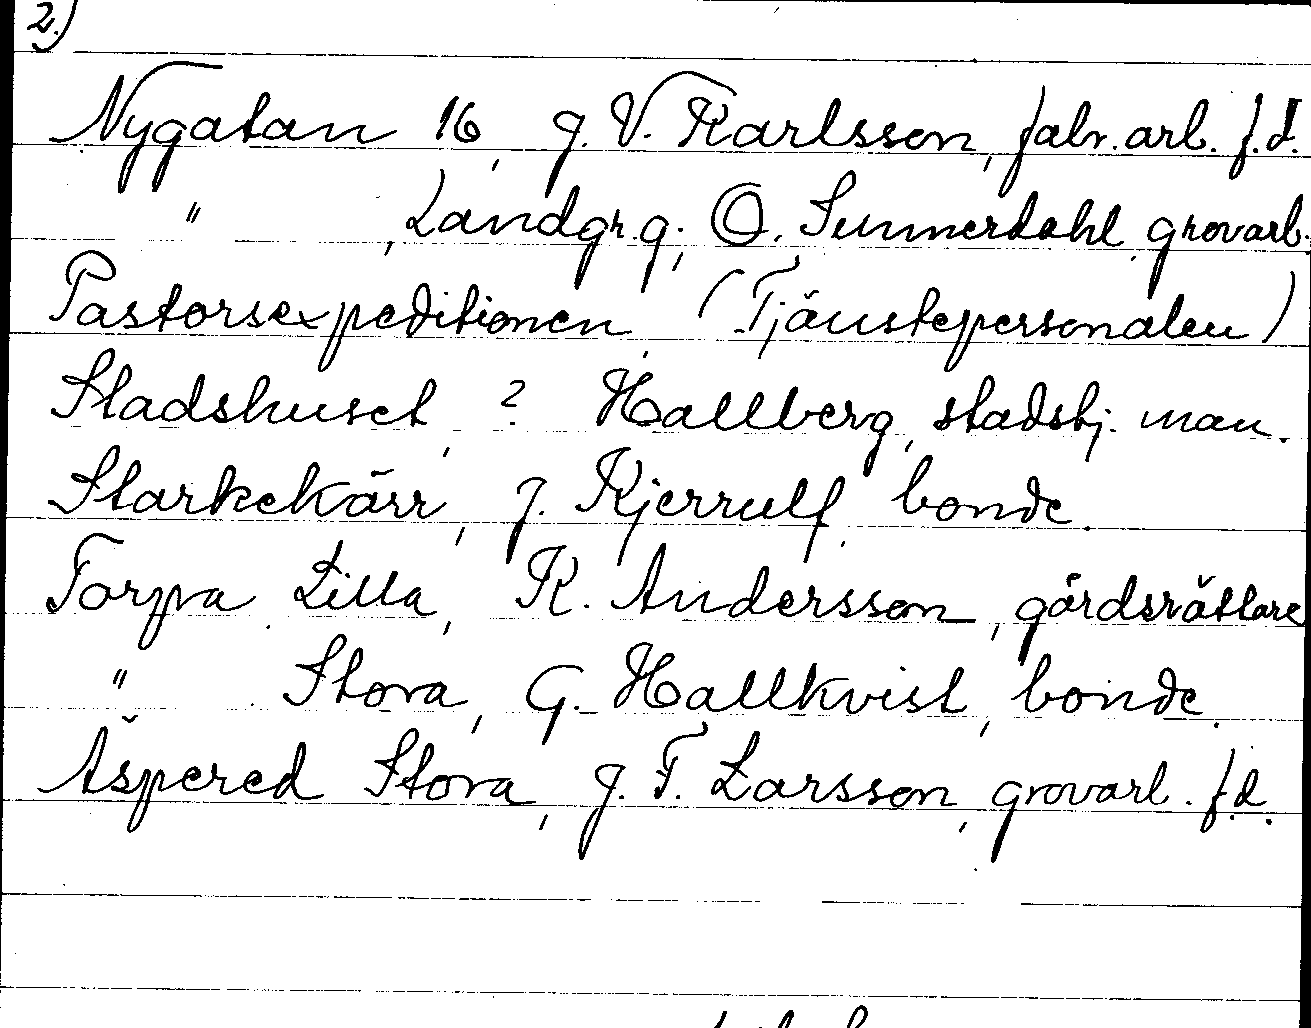 2.)
Nygatan 16, J. V. Karlsson, fabr. arb. f.d.
" , Landgr. g., O. Sunnerdahl, grovarb.
Pastorsexpeditionen, (Tjänstepersonalen)
Stadshuset, ? Hallberg, stadstj. man.
Starkekärr, J. Kjerrulf, bonde.
Torpa Lilla, K. Andersson, gårdsrättare
" Stora, G. Hallkvist, bonde.
Äspered Stora, J. F. Larsson, grovarb. f.d.